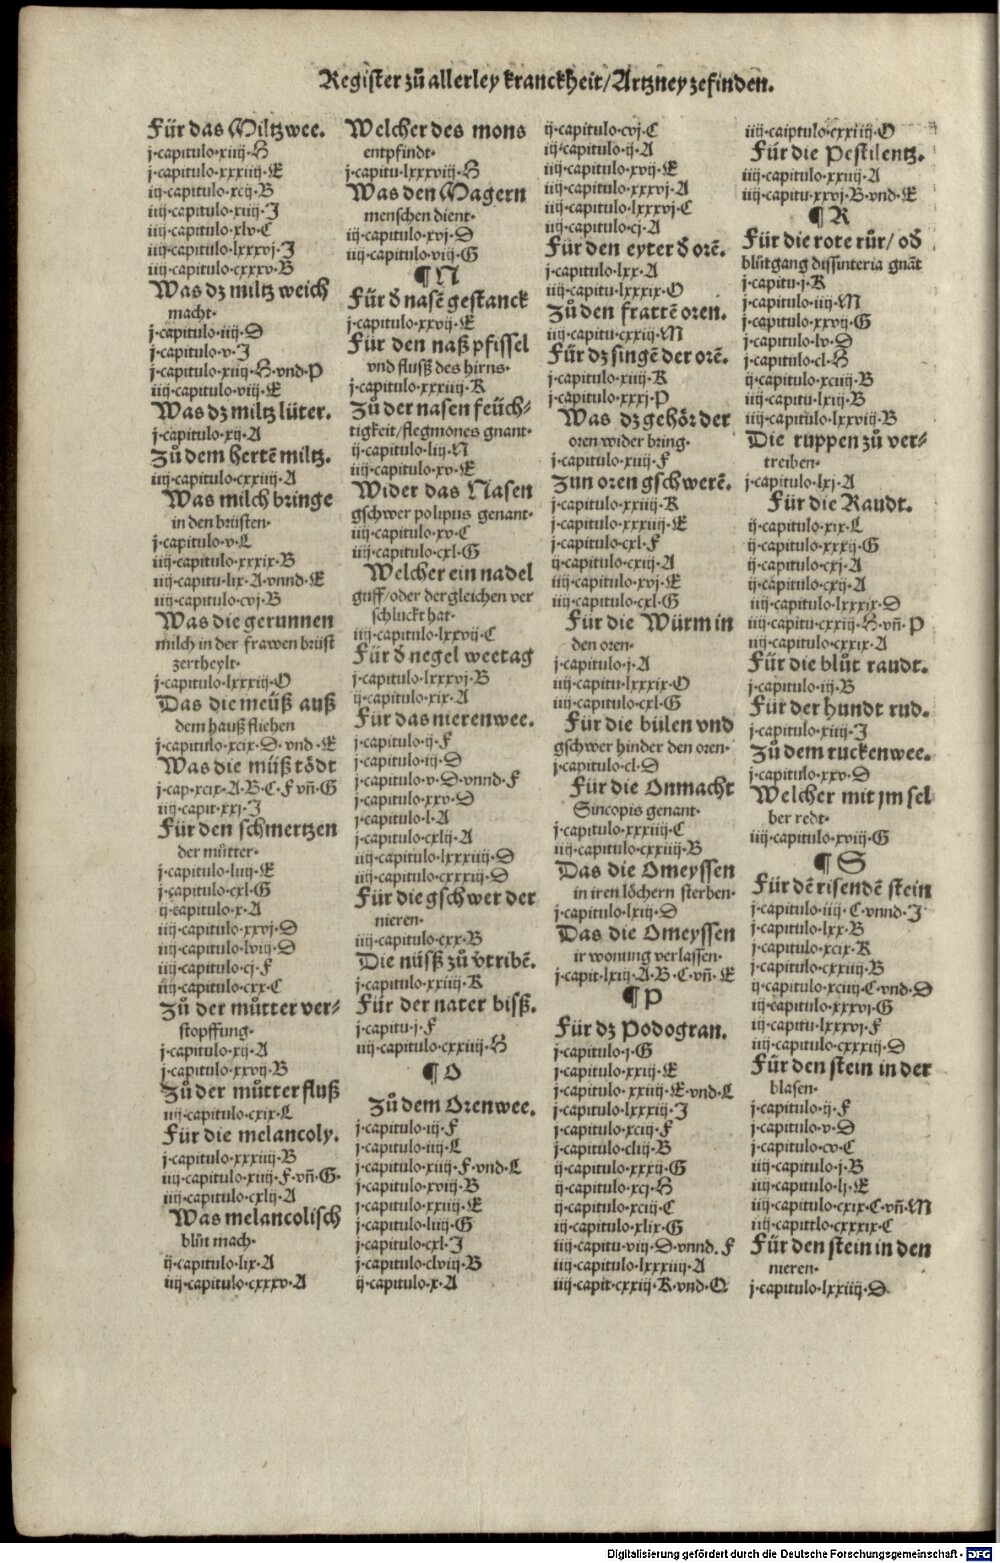 Register zů allerley kranckheit/Artzney zefinden.
Für das Miltzwee.
j·capitulo·xiiij·H
j·capitulo·xxxiiij·E
iij·capitulo·xcij·B
iiij·capitulo·xiiij·J
iiij·capitulo·xlv·C
iiij·capitulo·lxxxvj·J
iiij·capitulo·cxxxv·B
Was dz miltz weich
macht·
j·capitulo·iiij·D
j·capitulo·v·J
j·capitulo·xiiij·H·vnd·P
iiij·capitulo·viij·E
Was dz miltz lüter.
j·capitulo·xij·A
Zů dem hertē miltz.
iiij·capitulo·cxxiiij·A
Was milch bringe
in den brüsten·
j·capitulo·v·L
iiij·capitulo·xxxix·B
iiij·capitu·lix·A·vnnd·E
iiij·capitulo·cvj·B
Was die gerunnen
milch in der frawen brüst
zertheylt·
j·capitulo·lxxxiij·O
Das die meüß auß
dem hauß fliehen
j·capitulo·xcix·D·vnd·E
Was die müß tödt
j·cap·xcix·A·B·C·F vñ·G
iiij·capit·xxj·J
Für den schmertzen
der můtter·
j·capitulo·liiij·E
j·capitulo·cxl·G
ij·capitulo·x·A
iiij·capitulo·xxvj·D
iiij·capitulo·lviij·D
iiij·capitulo·cj·F
iiij·capitulo·cxx·C
Zů der můtter ver⸗
stopffung·
j·capitulo·xij·A
j·capitulo·xxvij·B
Zů der můtterfluß
iiij·capitulo·cxix·L
Für die melancoly.
j·capitulo·xxxiiij·B
iiij·capitulo·xiiij·F·vñ·G·
iiij·capitulo·cxlij·A
Was melancolisch
blůt mach·
ij·capitulo·lix·A
iiij·capitulo·cxxxv·A
Welcher des mons
entpfindt·
j·capitu·lxxxviij·H
Was den Magern
menschen dient·
iij·capitulo·xvj·D
iiij·capitulo·viij·G
¶ N
Für d nasē gestanck
j·capitulo·xxvij·E
Für den naß pfissel
vnd flusß des hirns·
j·capitulo·xxxiiij·K
Zů der nasen feüch⸗
tigkeit/flegmones gnant·
ij·capitulo·liij·N
iiij·capitulo·xv·E
Wider das Nasen
gschwer polipus genant·
iiij·capitulo·xv·C
iiij·capitulo·cxl·G
Welcher ein nadel
guff/oder der gleichen ver
schluckt hat·
iiij·capitulo·lxxvij·C
Für d negel weetag
j·capitulo·lxxxvj·B
ij·capitulo·xix·A
Für das nierenwee.
j·capitulo·ij·F
j·capitulo·iij·D
j·capitulo·v·D·vnnd·F
j·capitulo·xxv·D
j·capitulo·l·A
j·capitulo·cxlij·A
iiij·capitulo·lxxxiiij·D
iiij·capitulo·cxxxiij·D
Für die gschwer der
nieren·
iiij·capitulo·cxx·B
Die nüsß zů vtribē.
j·capitulo·xxiiij·K
Für der nater bisß.
j·capitu·j·F
iiij·capitulo·cxxiiij·H
¶ O
Zů dem Orenwee.
j·capitulo·iij·F
j·capitulo·iiij·L
j·capitulo·xiiij·F·vnd·L
j·capitulo·xviij·B
j·capitulo·xxiiij·E
j·capitulo·liiij·G
j·capitulo·cxl·J
j·capitulo·clviij·B
ij·capitulo·x·A
ij·capitulo·cvj·C
iij·capitulo·ij·A
iiij·capitulo·xvij·E
iiij·capitulo·xxxvj·A
iiij·capitulo·lxxxvj·C
iiij·capitulo·cj·A
Für den eyter d orē.
j·capitulo·lxx·A
iiij·capitu·lxxxix·O
Zů den frattē oren.
iiij·capitu·cxxiij·M
Für dz singē der orē.
j·capitulo·xiiij·K
j·capitulo·xxxj·P
Was dz gehör der
oren wider bring·
j·capitulo·xiiij·F
Zun oren gschwerē.
j·capitulo·xxiiij·K
j·capitulo·xxxiij·E
j·capitulo·cxl·F
ij·capitulo·cxiij·A
iiij·capitulo·xvj·E
iiij·capitulo·cxl·G
Für die Würm in
den oren·
j·capitulo·j·A
iiij·capitu·lxxxix·O
iiij·capitulo·cxl·G
Für die bülen vnd
gschwer hinder den oren·
j·capitulo·cl·D
Für die Onmacht
Sincopis genant·
j·capitulo·xxxiiij·C
iiij·capitulo·cxxiiij·B
Das die Omeyssen
in iren löchern sterben·
j·capitulo·lxiij·D
Das die Omeyssen
ir wonung verlassen·
j·capit·lxiij·A·B·C·vñ·E
¶ P
Für dz Podogran.
j·capitulo·j·G
j·capitulo·xxiij·E
j·capitulo·xxiiij·E·vnd·L
j·capitulo·lxxxiij·J
j·capitulo·xciij·F
j·capitulo·cliij·B
ij·capitulo·xxxij·G
ij·capitulo·xcj·H
ij·capitulo·xciij·C
iij·capitulo·xlix·G
iiij·capitu·viij·D·vnnd·F
iiij·capitulo·lxxxiiij·A
iiij·capit·cxxiij·K·vnd·Q
iiij·caiptulo·cxxiiij·O
Für die Pestilentz.
iiij·capitulo·xxiij·A
iiij·capitu·xxvj·B·vnd·E
¶ R
Für die rote růr/ od
blůtgang dissinteria gnāt
j·capitu·j·K
j·capitulo·iiij·M
j·capitulo·xxvij·G
j·capitulo·lv·D
j·capitulo·cl·H
ij·capitulo·xciiij·B
iiij·capitu·lxiij·B
iiij·capitulo·lxxviij·B
Die ruppen zů ver⸗
treiben·
j·capitulo·lxj·A
Für die Raudt.
ij·capitulo·xix·L
ij·capitulo·xxxij·G
ij·capitulo·cxj·A
ij·capitulo·cxij·A
iiij·capitulo·lxxxix·D
iiij·capitu·cxxiij·H·vñ·P
iiij·capitulo·cxxix·A
Für die blůt raudt.
j·capitulo·iij·B
Für der hundt rud.
j·capitulo·xiiij·J
Zů dem ruckenwee.
j·capitulo·xxv·D
Welcher mit jm sel
ber redt·
iiij·capitulo·xviij·G
¶ S
Für dē risendē stein
j·capitulo·iiij·C·vnnd·J
j·capitulo·lxx·B
j·capitulo·xcix·K
j·capitulo·cxxiiij·B
ij·capitulo·xciiij·C·vnd·D
iij·capitulo·xxxvj·G
iiij·capitu·lxxxvj·F
iiij·capitulo·cxxxiij·D
Für den stein in der
blasen·
j·capitulo·ij·F
j·capitulo·v·D
j·capitulo·cv·C
iiij·capitulo·j·B
iiij·capitulo·lj·E
iiij·capitulo·cxix·C·vñ·M
iiij·capittlo·cxxxix·C
Für den stein in den
nieren·
j·capitulo·lxxiiij·D
Digitalisierung gefördert durch die Deutsche Forschungsgemeinschaft - DFG